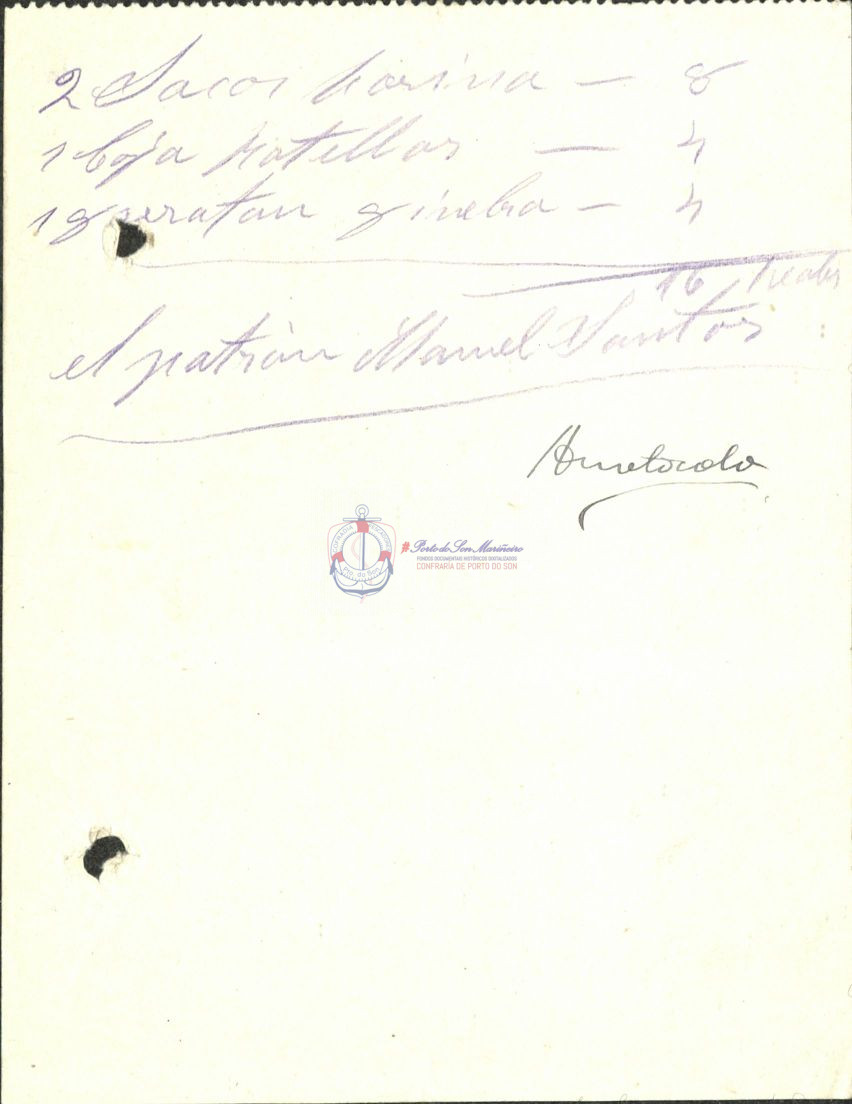 2 Sacos harina — 8
1 Caja botellas — 4
1 garatan ginebra — 4
16 Reales
el patrón Manuel Santos
COFRADIA PESCADORES
Pto. do Son
#Porto do Son Mariñeiro
FONDOS DOCUMENTAIS HISTÓRICOS DIXITALIZADOS
CONFRARÍA DE PORTO DO SON